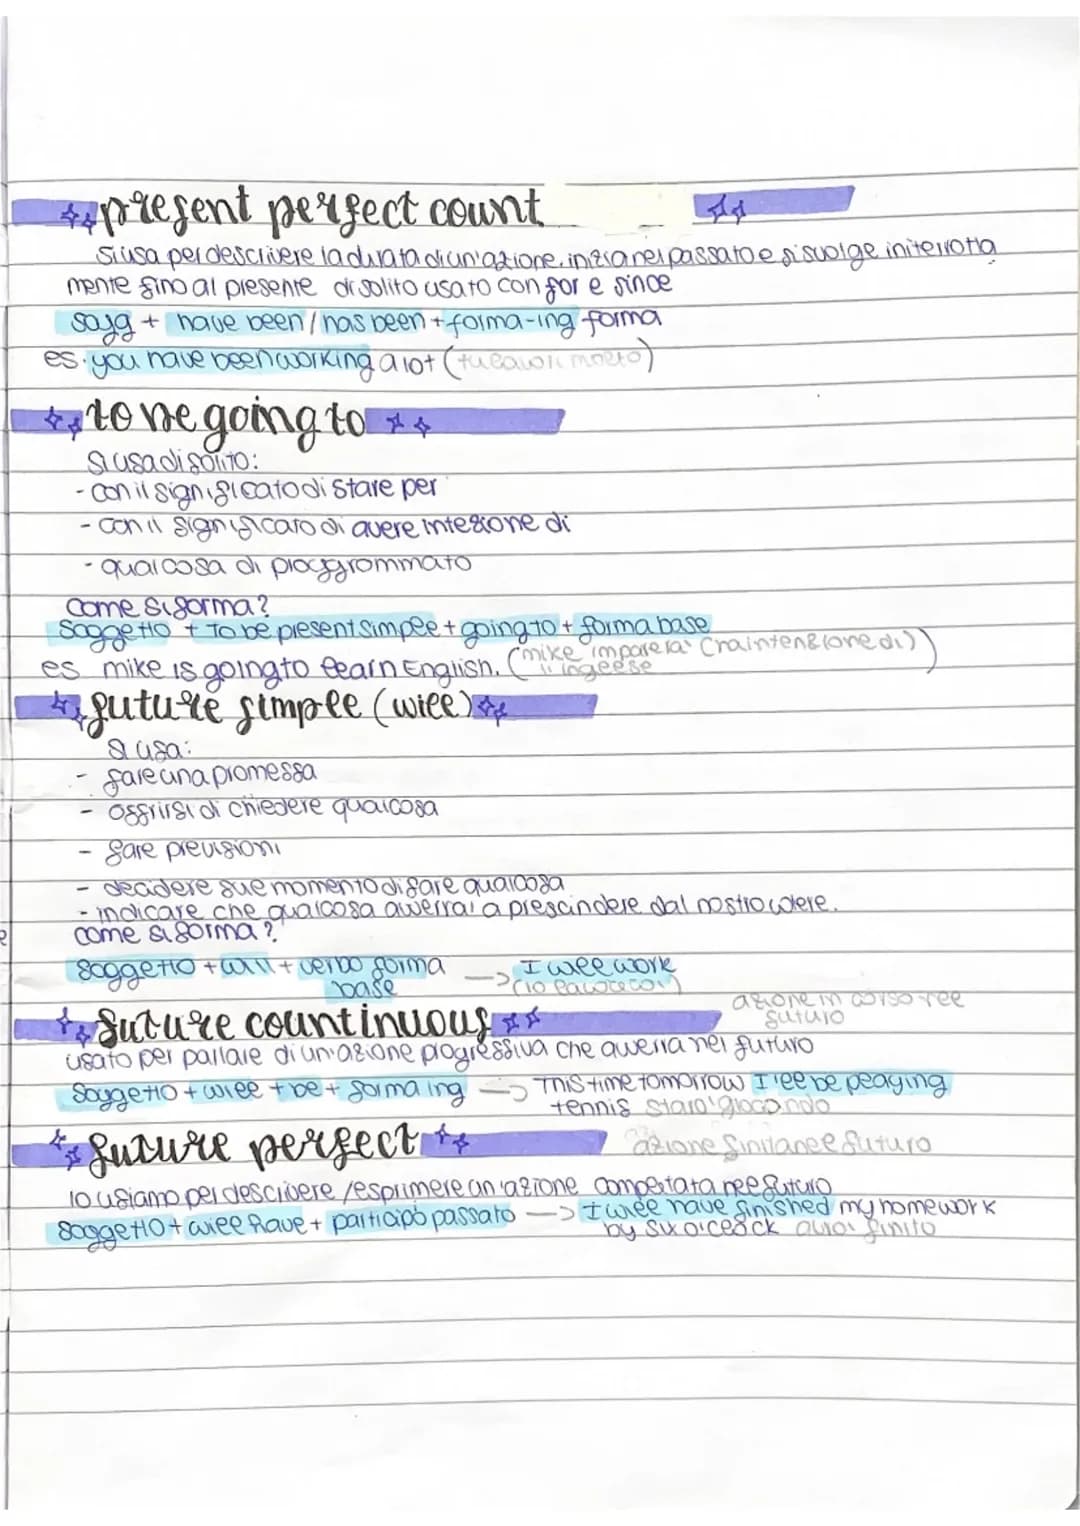 present perfect count
si usa per descrivere la durata di un'azione. inizia nel passato e si svolge initerrotta
mente fino al presente di solito usato con for e since
sogg + have been / has been + forma-ing forma
es. you have been working a lot (tu lavori molto)
to be going to
si usa di solito:
- con il significato di stare per
- con il significato di avere intezione di
- qualcosa di programmato
come si forma?
Soggetto + to be present simple + going to + forma base
es mike is going to learn English. (mike imparerà (ha intenzione di)
l'inglese)
future simple (will)
si usa:
- fare una promessa
- offrirsi di chiedere qualcosa
- fare previsioni
- decidere sul momento di fare qualcosa
- indicare che qualcosa avverrai a prescindere dal nostro volere.
come si forma?
soggetto + will + verbo forma —> I will work
base (io lavorerò)
future countinuous
azione in corso nel
futuro
usato per parlare di un'azione progressiva che avverrà nel futuro
Soggetto + will + be + forma ing —> This time tomorrow I'll be playing
tennis starò giocando
future perfect azione finita nel futuro
lo usiamo per descrivere /esprimere un'azione completata nel futuro
soggetto + will have + participo passato —> I will have finished my homework
by six o'clock avrò finito